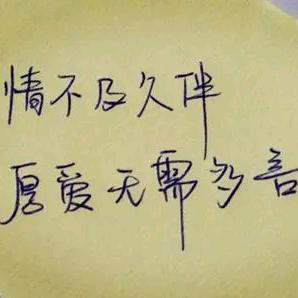 情不及久伴
厚爱无需多言